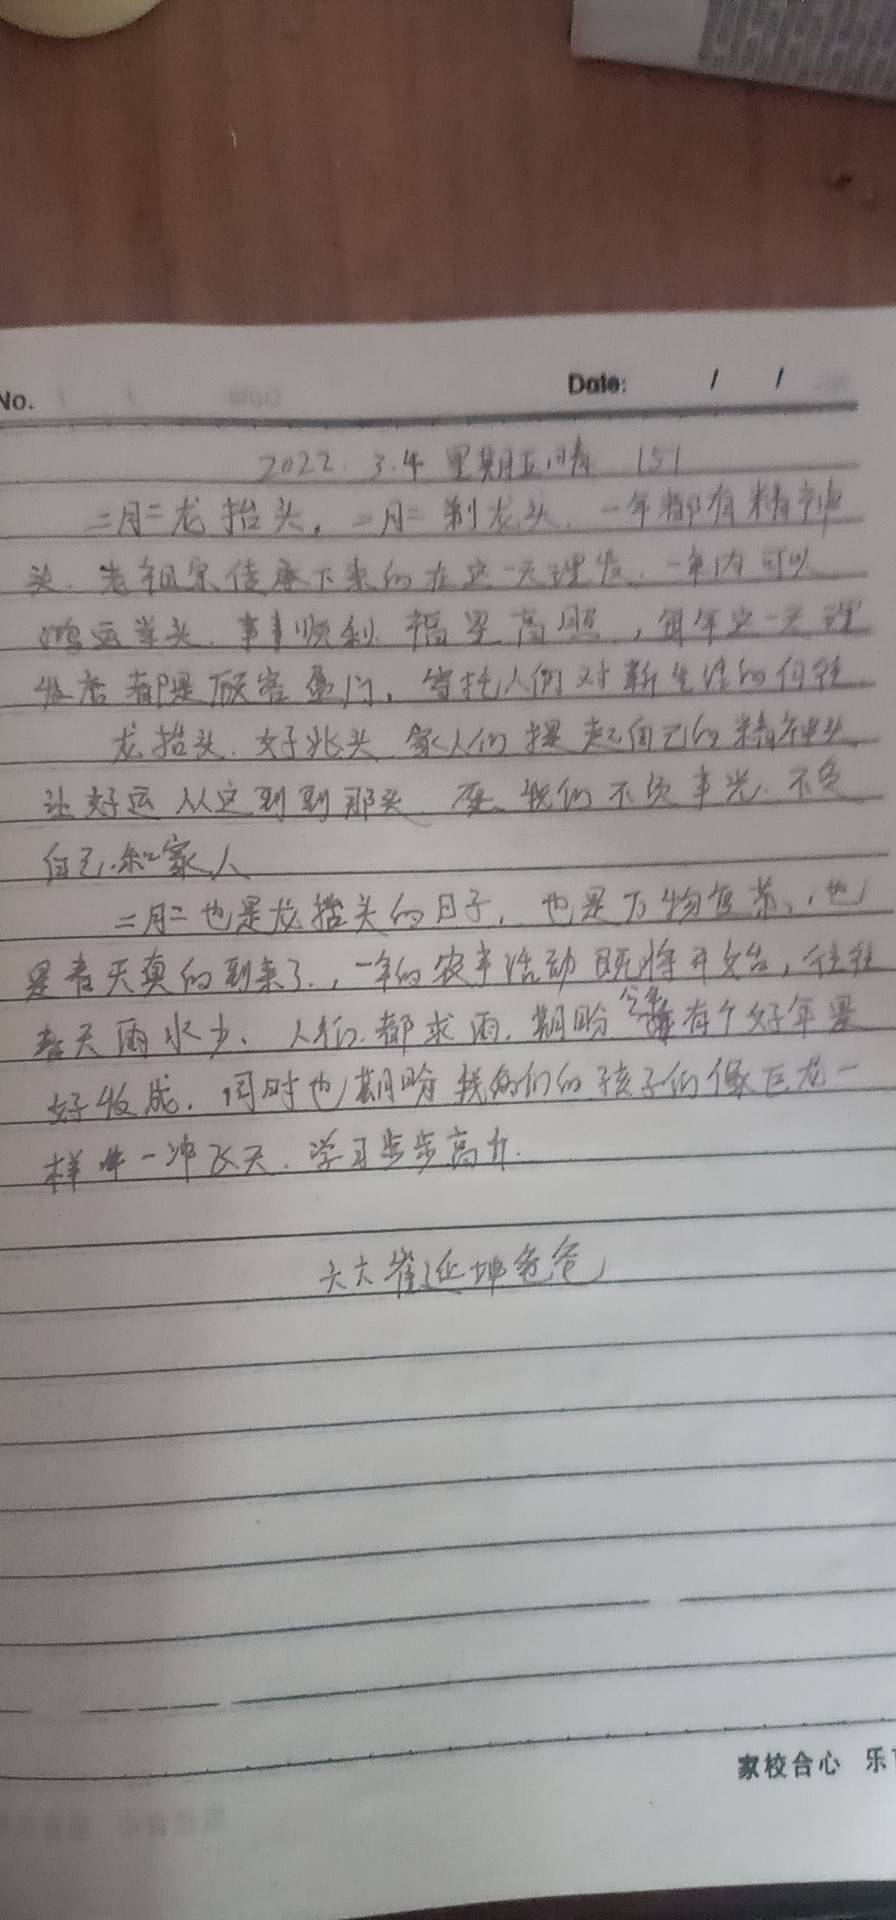 No.
Date: / /
2022.3.4 星期五 晴 151
二月二龙抬头，二月二剃龙头，一年都有精神
头.老祖宗传承下来的在这一天理发.一年内可以
鸿运当头.事事顺利.福星高照，每年这一天理
发店都是顾客盈门.寄托人们对新生活的向往.
龙抬头.好兆头 家人们提起自己的精神头
让好运从这到到那头 愿我们不负事光.不负
自己.和家人
二月二也是龙抬头的日子，也是万物复苏，也
是春天真的到来了.，一年的农事活动既将开始，往往
春天雨水少、人们都求雨.期盼今年有个好年景
好收成.同时也期盼我们的孩子们像巨龙一
样一冲飞天.学习步步高升.
六六崔延坤爸爸
家校合心 乐